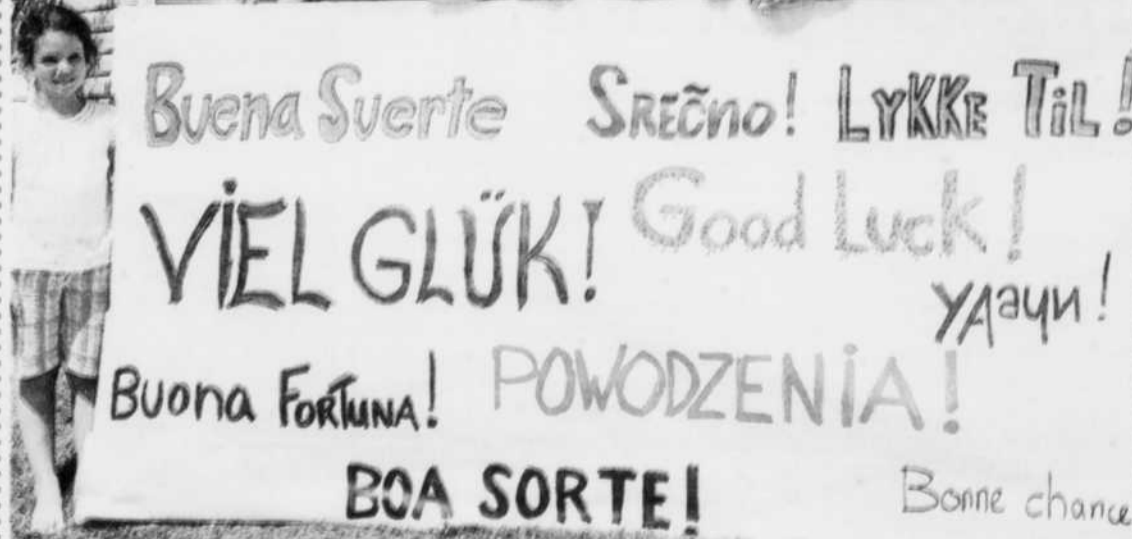 Buena Suerte SREČNO! LYKKE TIL!
VIEL GLÜK! Good Luck!
УДачи!
Buona FORTUNA! POWODZENIA!
BOA SORTE! Bonne chance